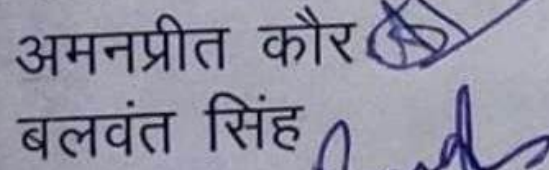 अमनप्रीत कौर
बलवंत सिंह